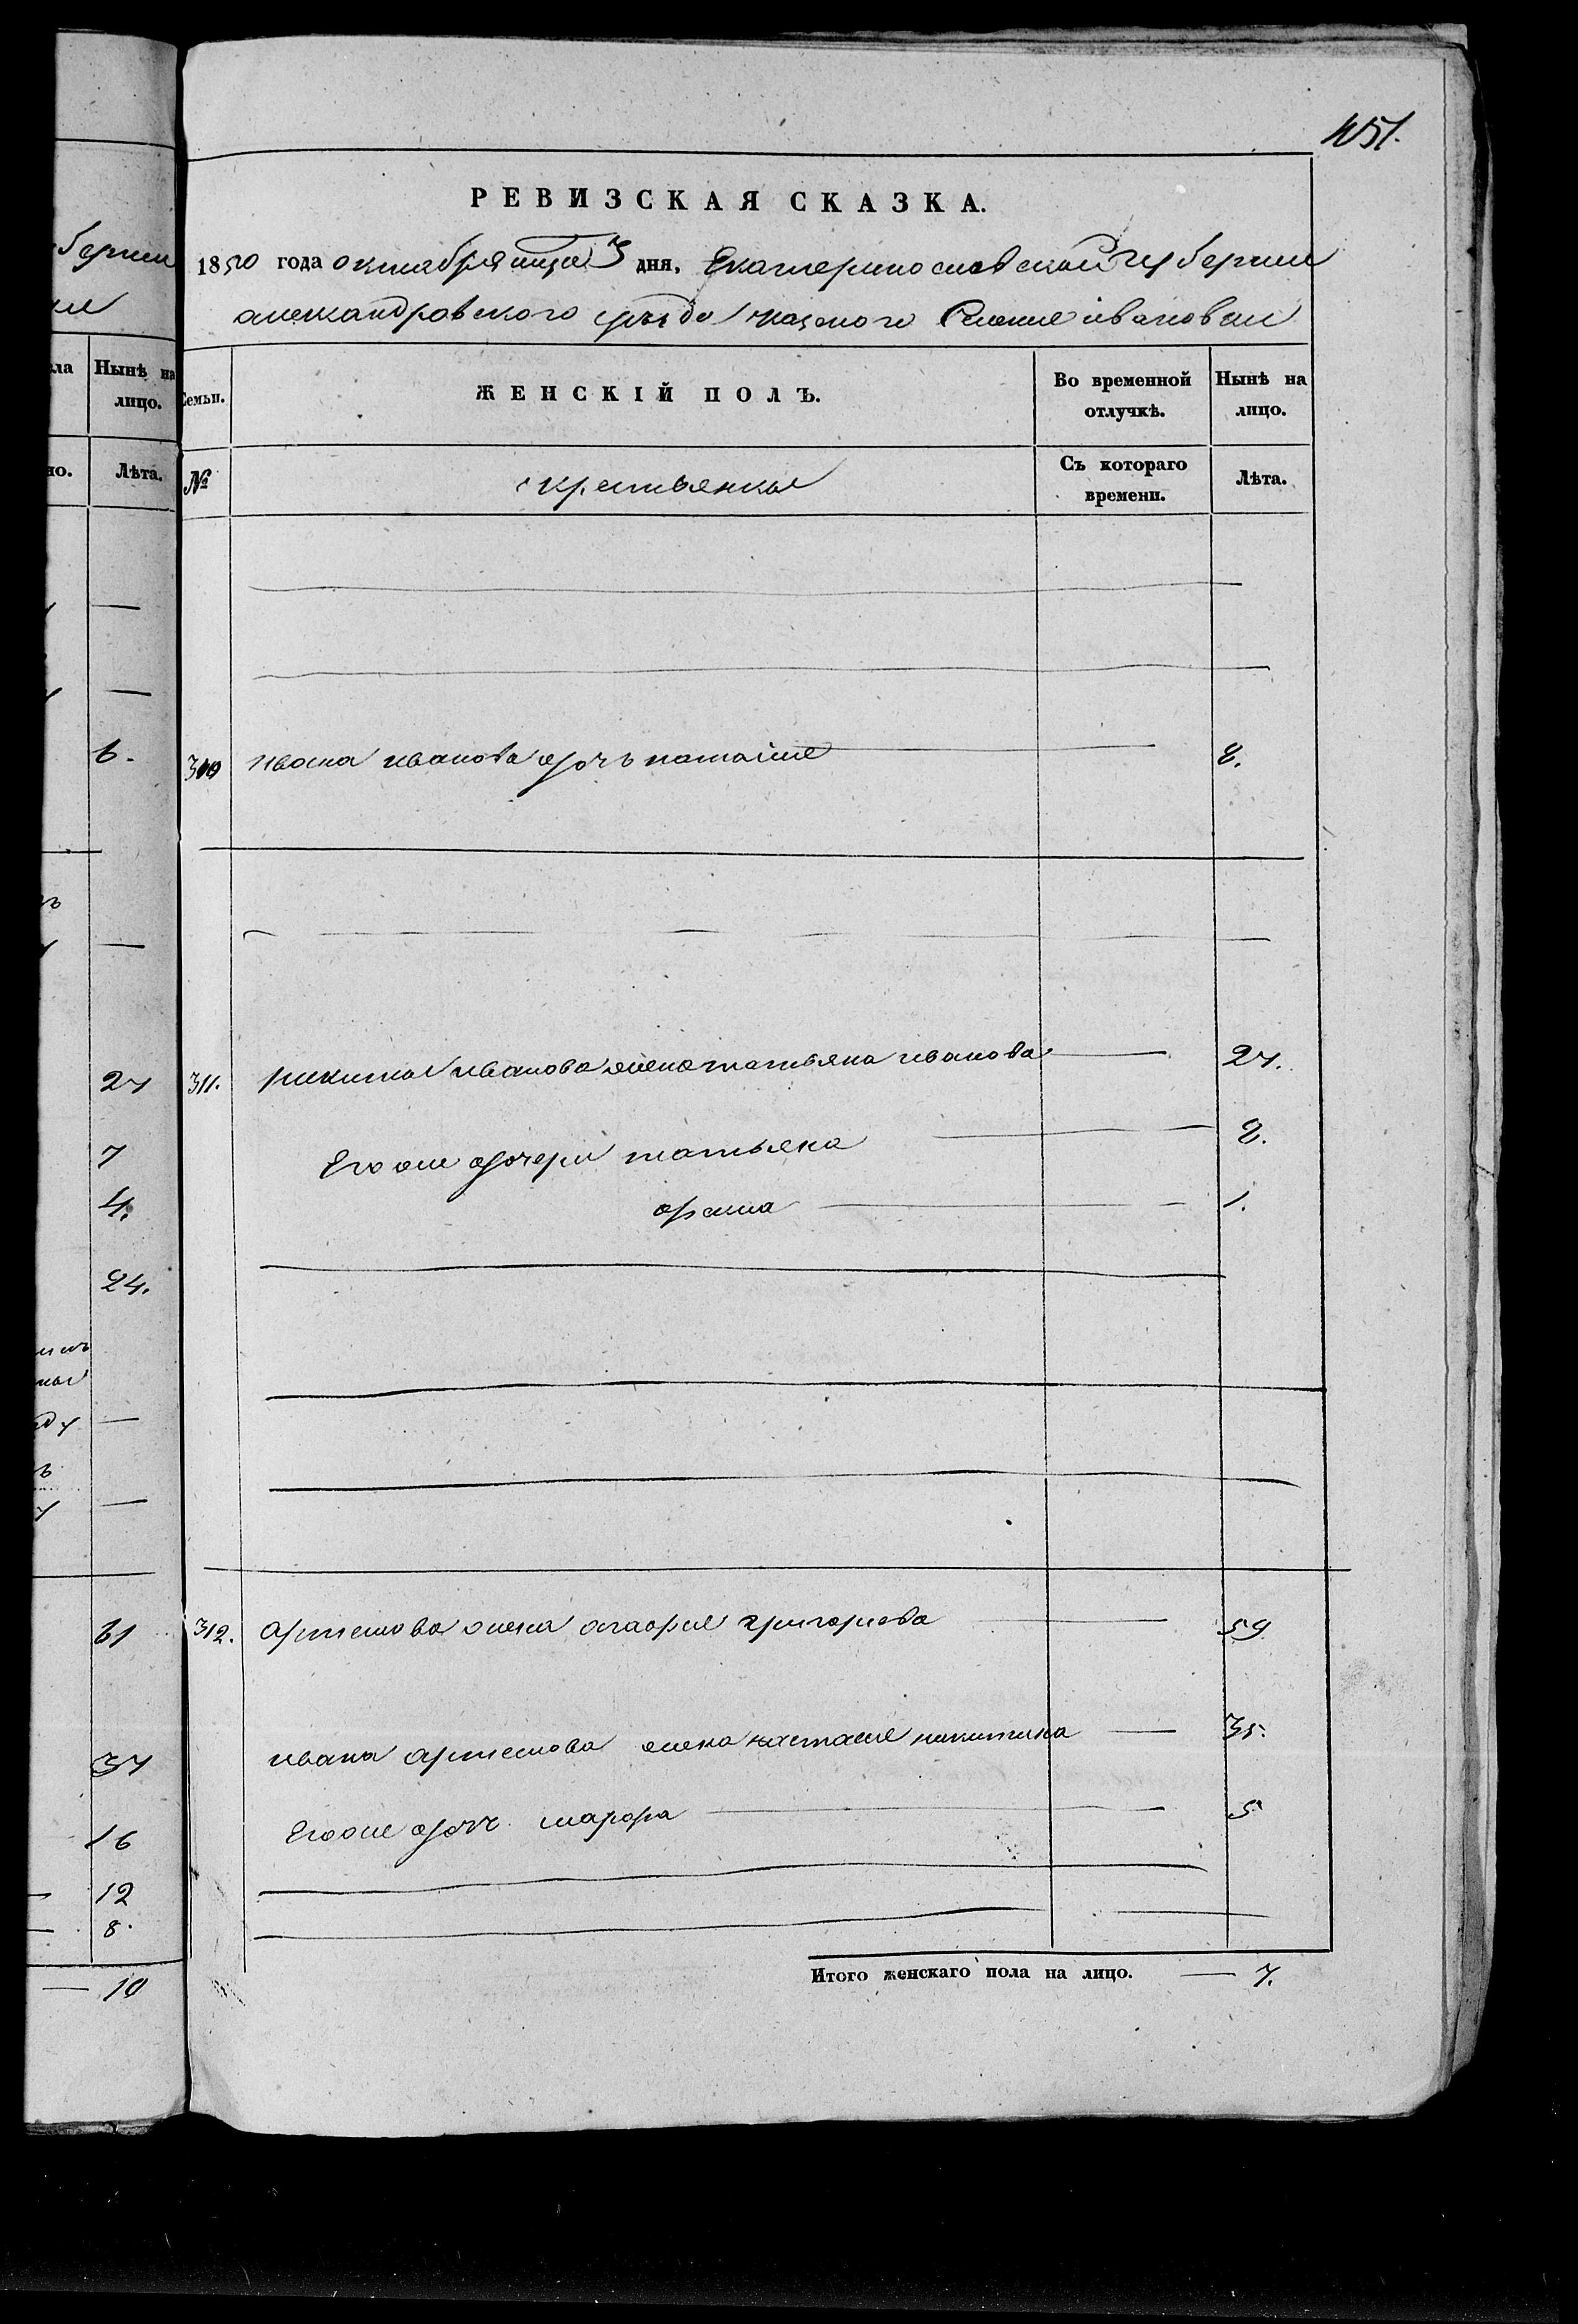 451.
РЕВИЗСКАЯ СКАЗКА.
1850 года октября месяца 3 дня, Екатеринославской губернии
александровского уезда казеного Селения ивановки
Семьи.
ЖЕНСКІЙ ПОЛЪ.
Во временной отлучкѣ.
Нынѣ на лицо.
№
крестьянки
Съ котораго времени.
Лѣта.
ивана иванова дочь наталия 8.
311. никиты иванова жена татьяна иванова 27.
Егоже дочери татьяна 8.
1.
312. артемова жена агафия григорьева 59
ивана артемова жена настасия никитина 35.
Егоже дочь марфа 5
Итого женскаго пола на лицо. — 7.
бернии
Нынѣ на лицо.
Лѣта.
6.
27
7
4.
24.
61
37
16
12
8.
10